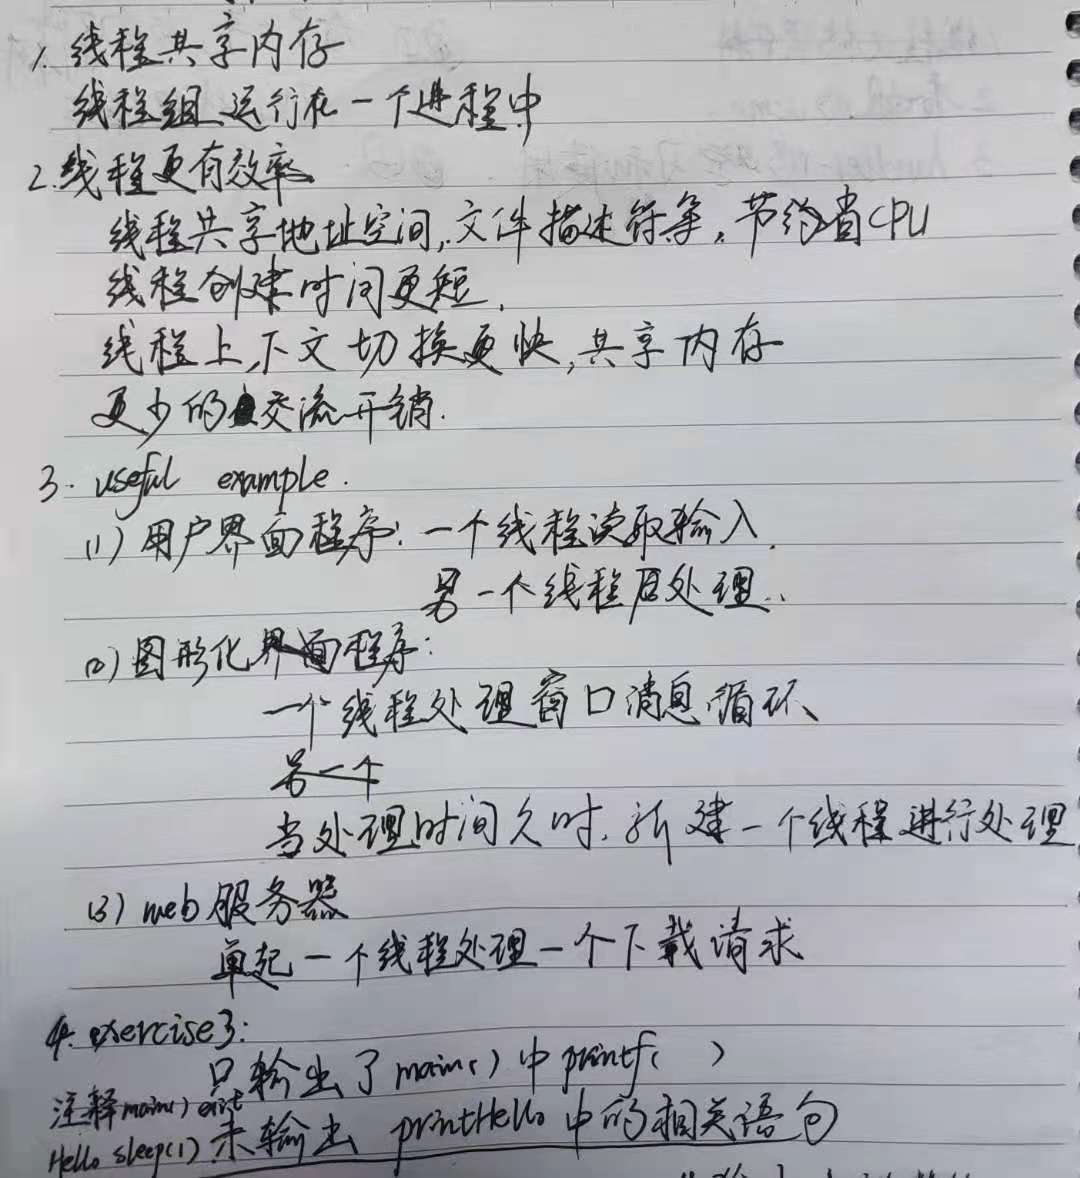 1. 线程共享内存
线程组运行在一个进程中
2. 线程更有效率
线程共享地址空间,文件描述符等,节约省CPU
线程创建时间更短.
线程上,下文切换更快,共享内存
更少的交流开销.
3. useful example.
(1) 用户界面程序: 一个线程读取输入,
另一个线程后处理..
(2) 图形化界面程序:
一个线程处理窗口消息循环
另一个
当处理时间久时,新建一个线程进行处理
(3) web服务器
单起一个线程处理一个下载请求
4. exercise3:
只输出了main()中printf( )
注释main() exit
Hello sleep(1) 未输出 printHello 中的相关语句